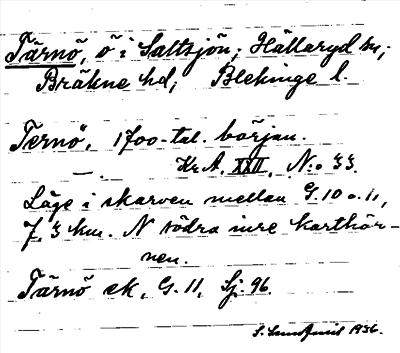 Tärnö, ö i Saltsjön; Hällaryd sn,
Bräkne hd, Blekinge l.
Ternö, 1700-tal. början.
—. Kr. A. XXII, N:o 33.
Läge i skarven mellan G. 10 o. 11,
7,3 km. N södra inre karthör-
nen.
Tärnö ek, G. 11, Sj. 96.
1936.